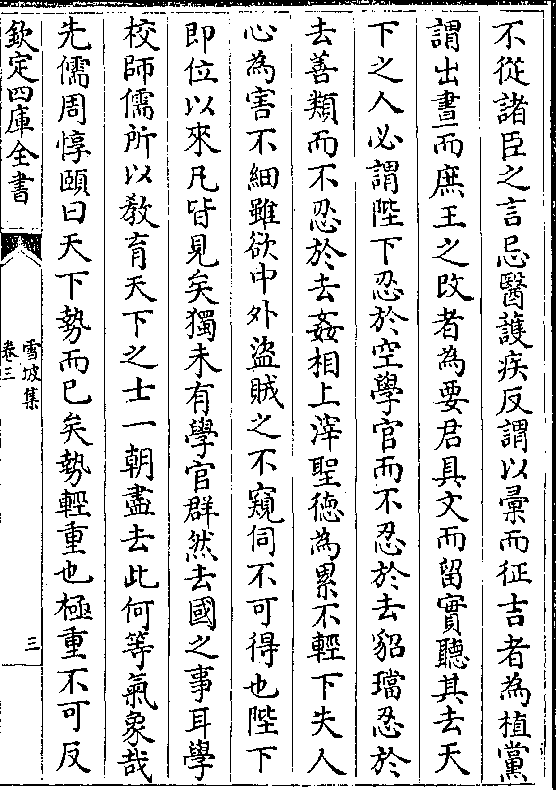 不從諸臣之言忌醫護疾反謂以彚而征吉者為植黨
謂出晝而庶王之改者為要君具文而留實聽其去天
下之人必謂陛下忍於空學官而不忍於去貂璫忍於
去善類而不忍於去姦相上滓聖徳為累不輕下失人
心為害不細雖欲中外盜賊之不窺伺不可得也陛下
即位以來凡皆見矣獨未有學官群然去國之事耳學
校師儒所以教育天下之士一朝盡去此何等氣象哉
先儒周惇頤曰天下勢而已矣勢輕重也極重不可反
欽定四庫全書
雪坡集
卷三
三